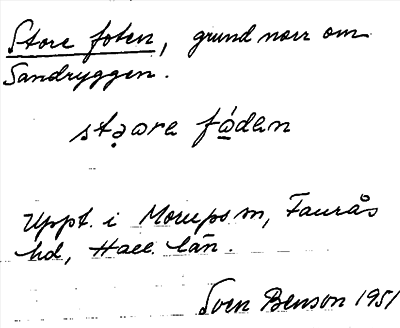 Store foten, grund norr om
Sandryggen.
stə̣ore fó̲den
Uppt. i Morups sn, Faurås
hd, Hall. län.
Sven Benson 1951